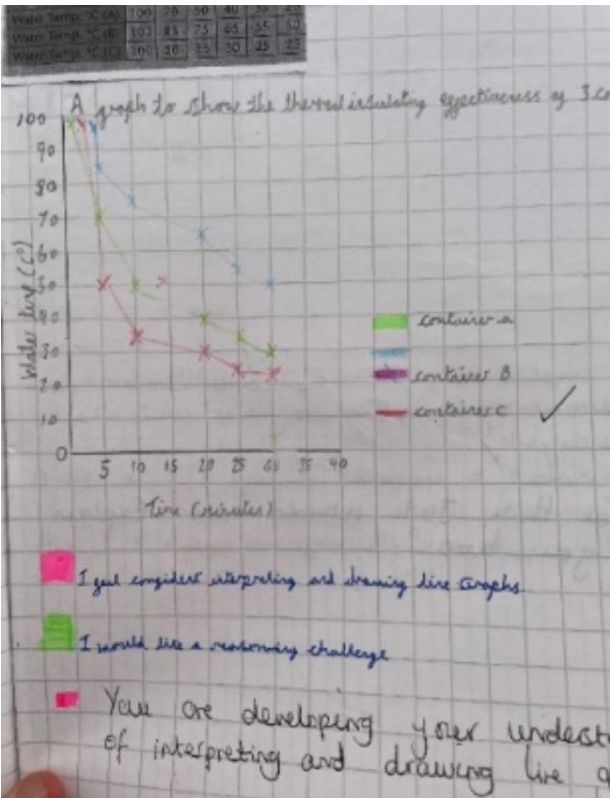 Water Temp. °C (A) 100 70 50 40 35 30
Water Temp. °C (B) 100 85 75 65 55 50
Water Temp. °C (C) 100 50 35 30 25 25
A graph to show the thermal insulating effectiveness of 3 co
100
90
80
70
60
50
40
30
20
10
0
Water temp (C°)
5 10 15 20 25 30 35 40
Time (minutes)
container a
container B
container c
I feel confident interpreting and drawing line Graphs.
I would like a reasoning challenge
You are developing your underst
of interpreting and drawing line g